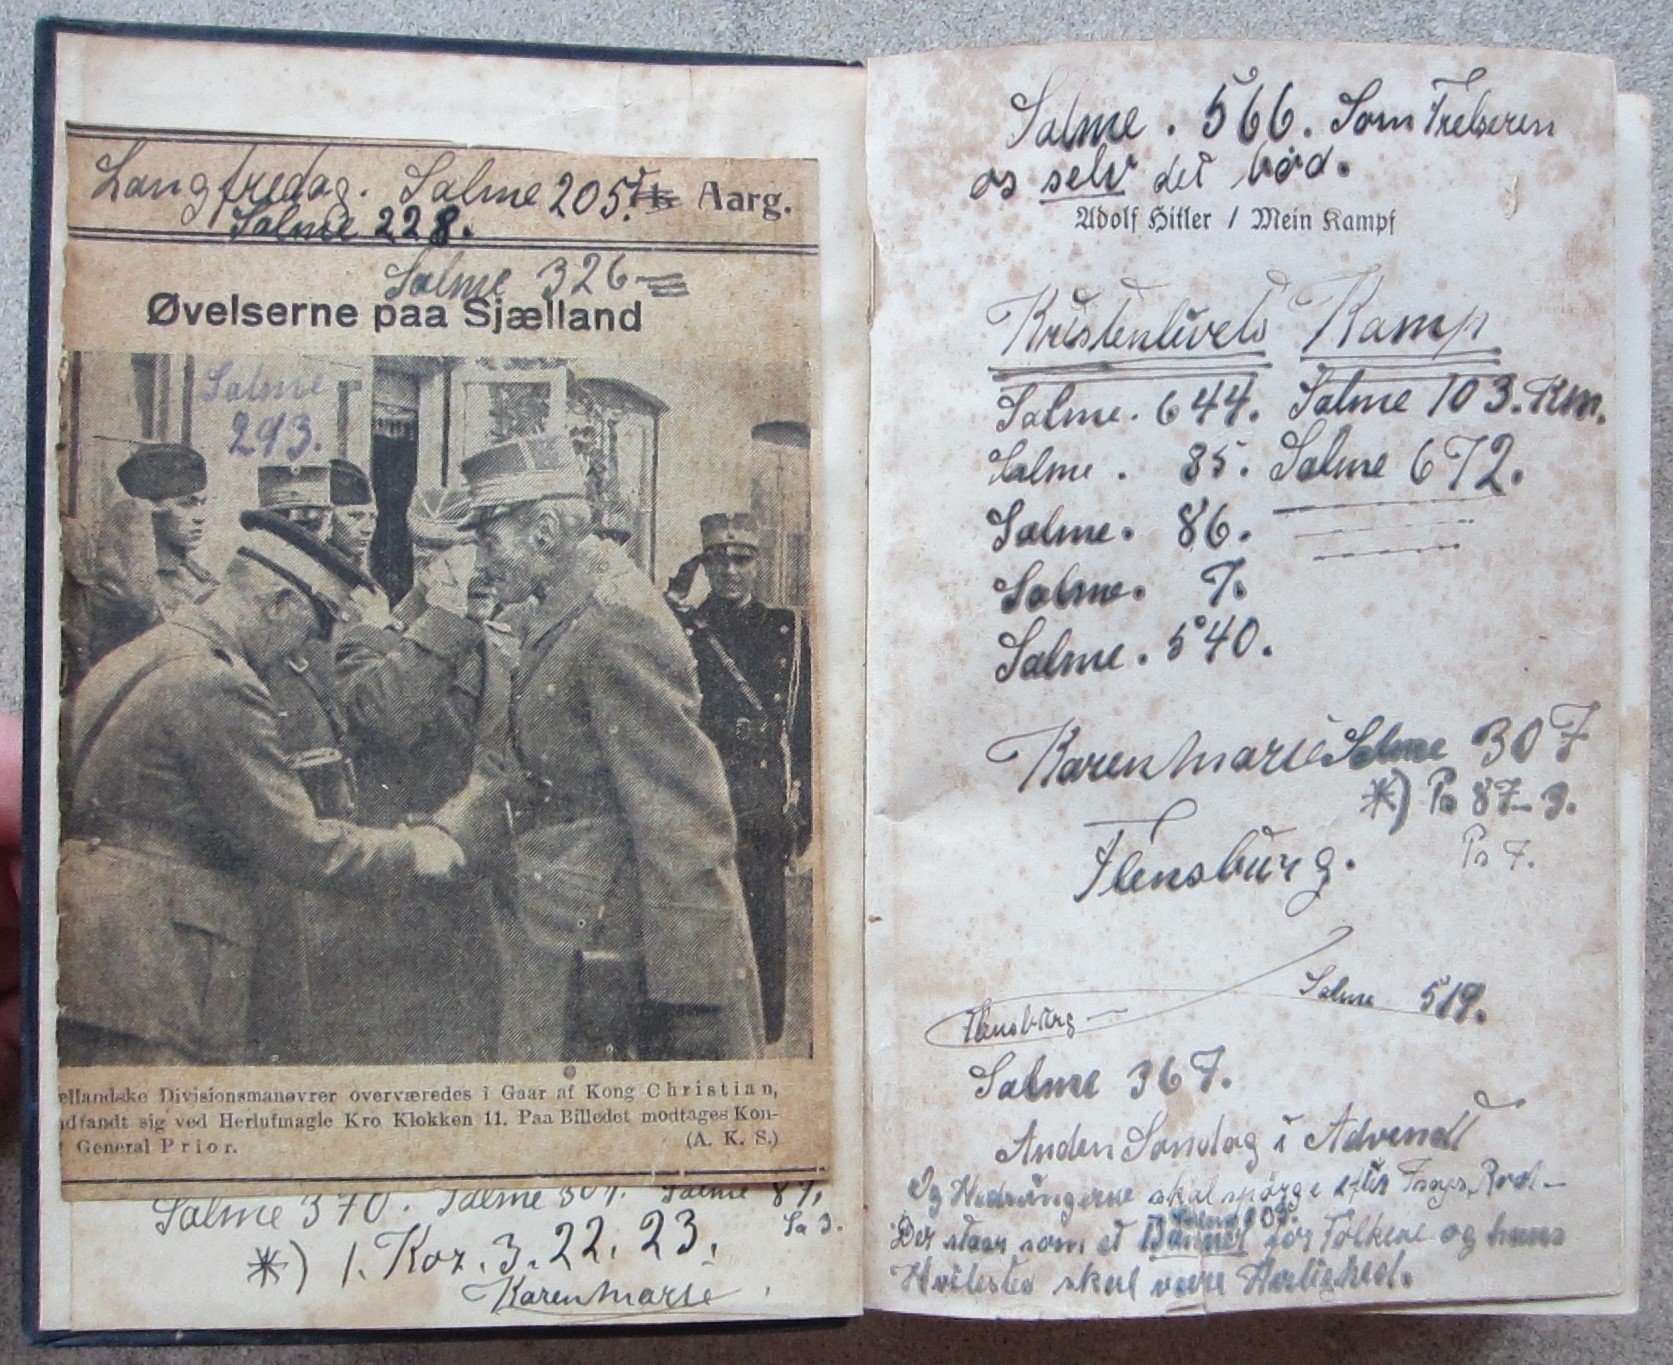 Langfredag. Salme 205. Aarg.
Salme 228.
Salme 326
Øvelserne paa Sjælland
Salme
293.
ellandske Divisionsmanøvrer overværedes i Gaar af Kong Christian,
dfandt sig ved Herlufmagle Kro Klokken 11. Paa Billedet modtages Kon-
General Prior. (A. K. S.)
Salme 370. Salme 307. Salme 87,
Sa 3.
*) 1. Kor. 3. 22. 23.
Karen Marie
Salme. 566. Som Frelseren
os selv det bød.
Adolf Hitler / Mein Kampf
Kristenlivets Kamp
Salme. 644. Salme 103. Km.
Salme. 85. Salme 672.
Salme. 86.
Salme. 7.
Salme. 540.
Karen Marie Salme 307
*) Ps 87-3.
Flensburg. Ps 7.
Flensburg — Salme 519.
Salme 367.
Anden Søndag i Advendt
Og Hedningerne skal spørge efter Isajs Rod-
Der staar som et Banner for Folkene og hans
Hvilested skal være Herlighed.